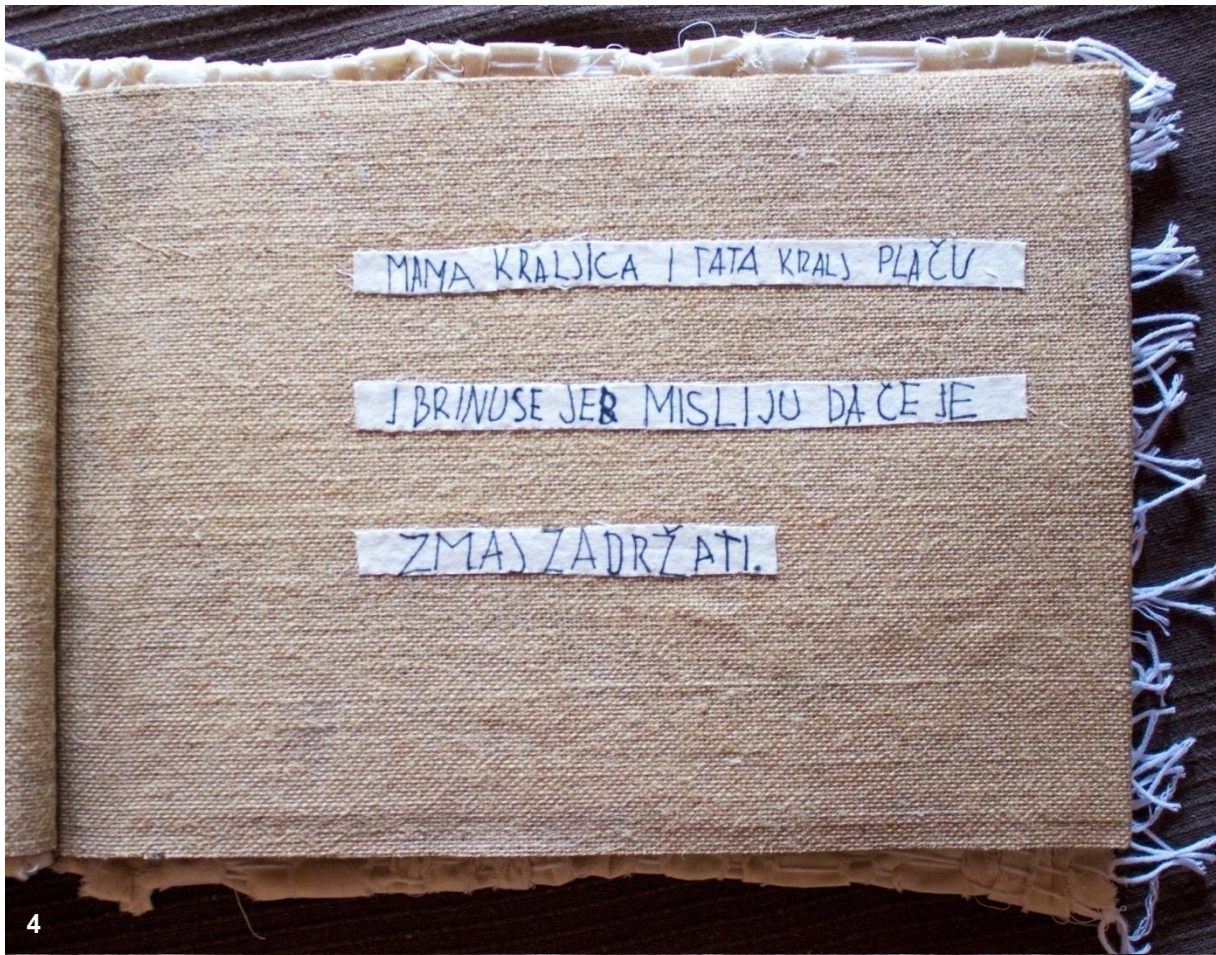 MAMA KRALJICA I TATA KRALJ PLAČU
I BRINUSE JER MISLIJU DA ČE JE
ZMAJ ZADRŽATI.
4